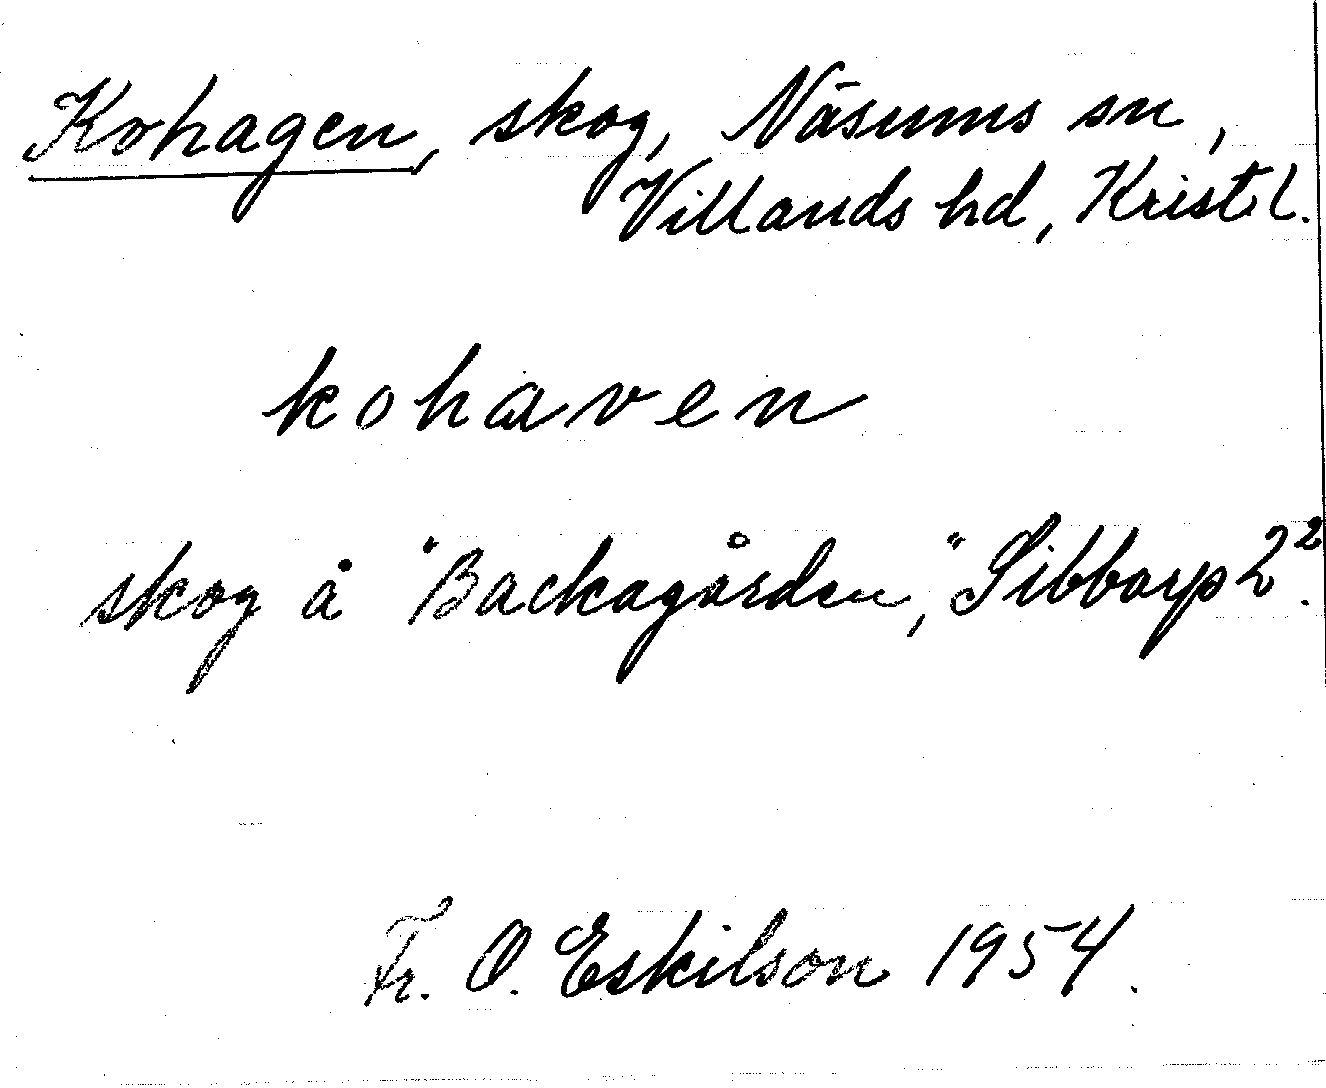 Kohagen, skog, Näsums sn,
Villands hd, Krist. l.
kohaven
skog å "Backagården," Sibbarp 2².
Fr. O. Eskilson 1954.